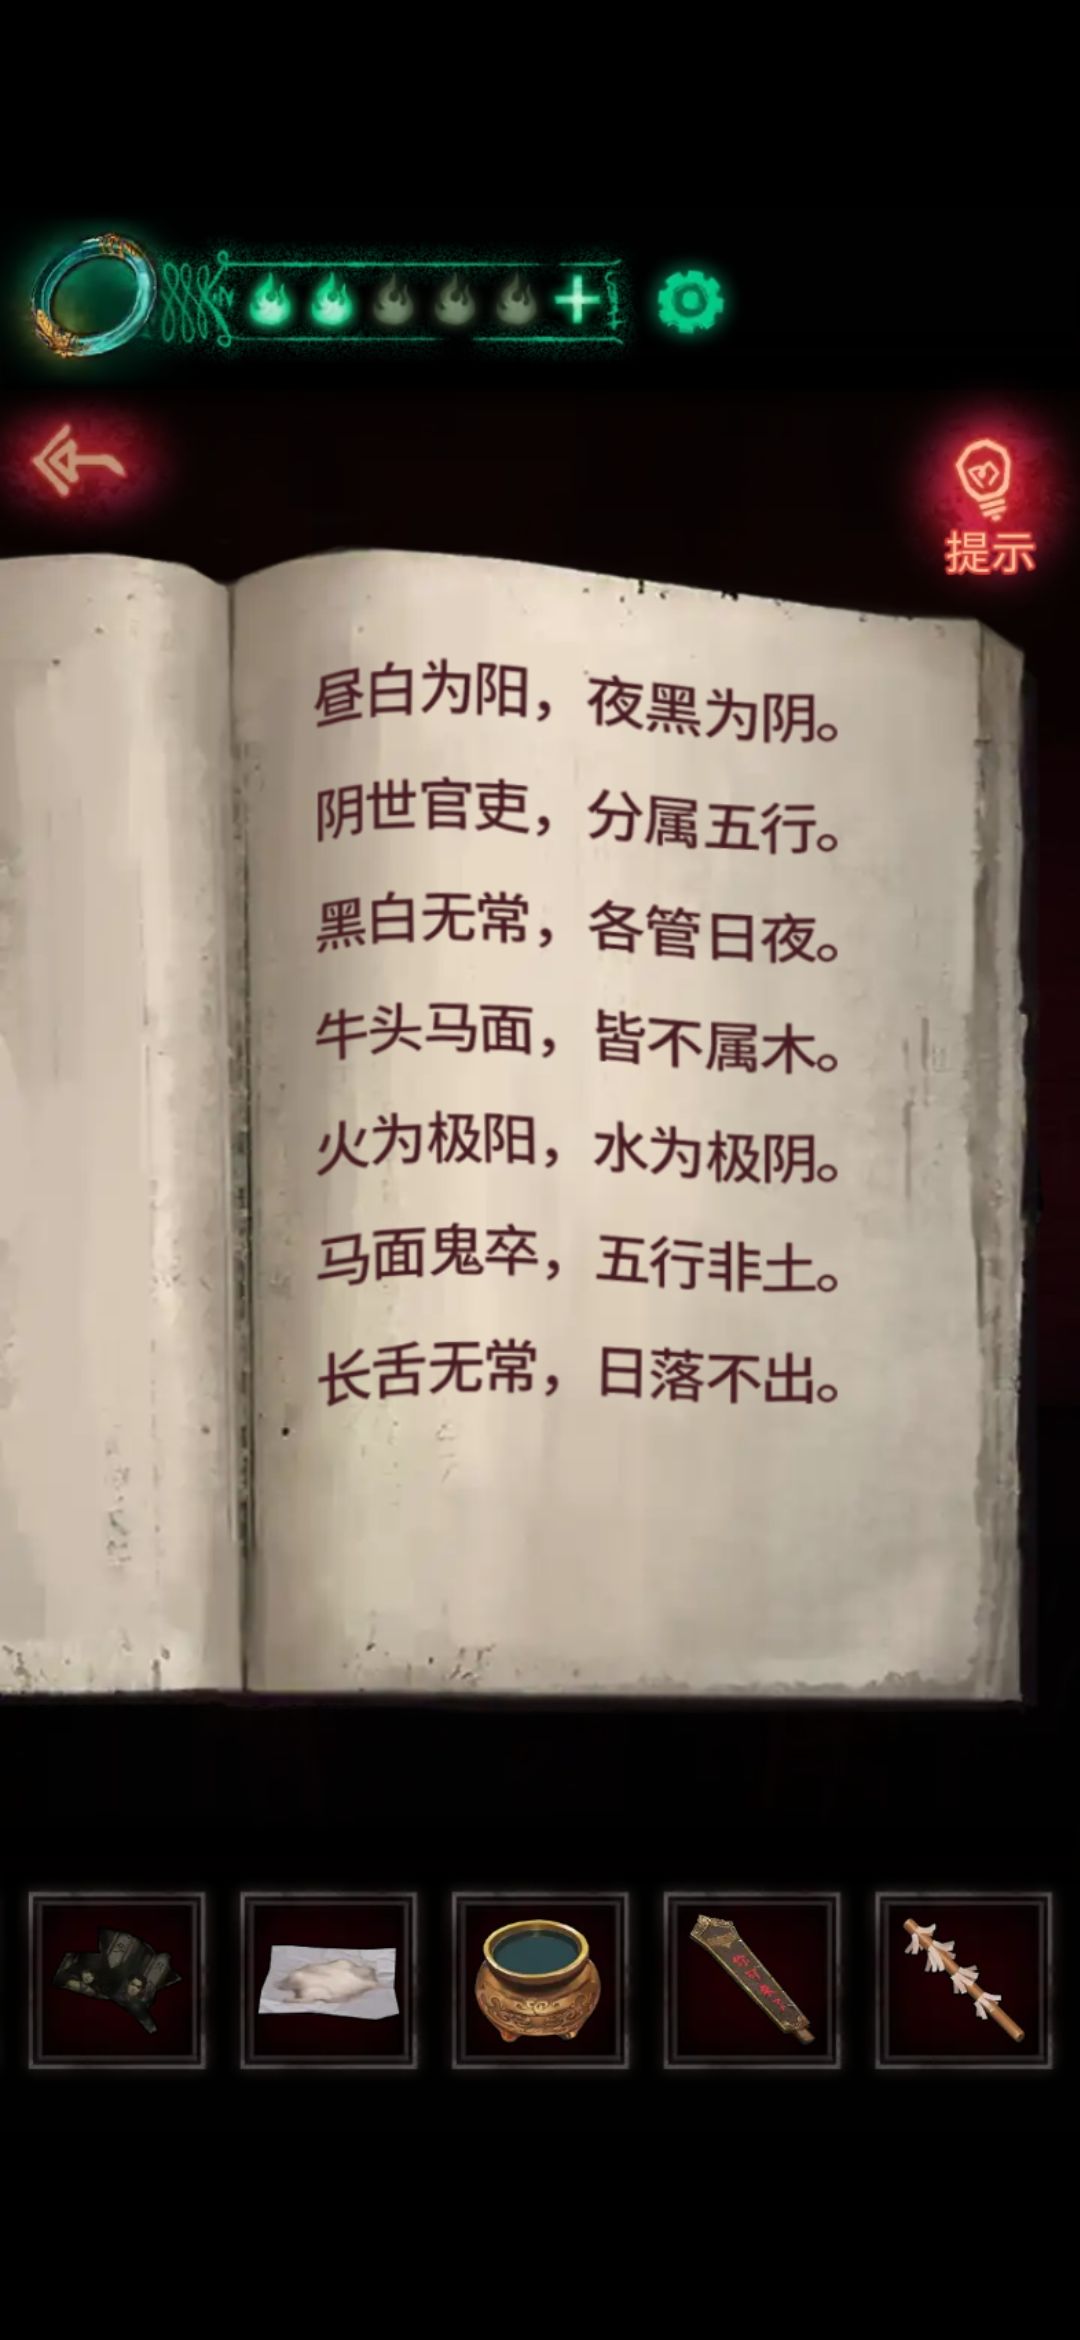 提示
昼白为阳，夜黑为阴。
阴世官吏，分属五行。
黑白无常，各管日夜。
牛头马面，皆不属木。
火为极阳，水为极阴。
马面鬼卒，五行非土。
长舌无常，日落不出。